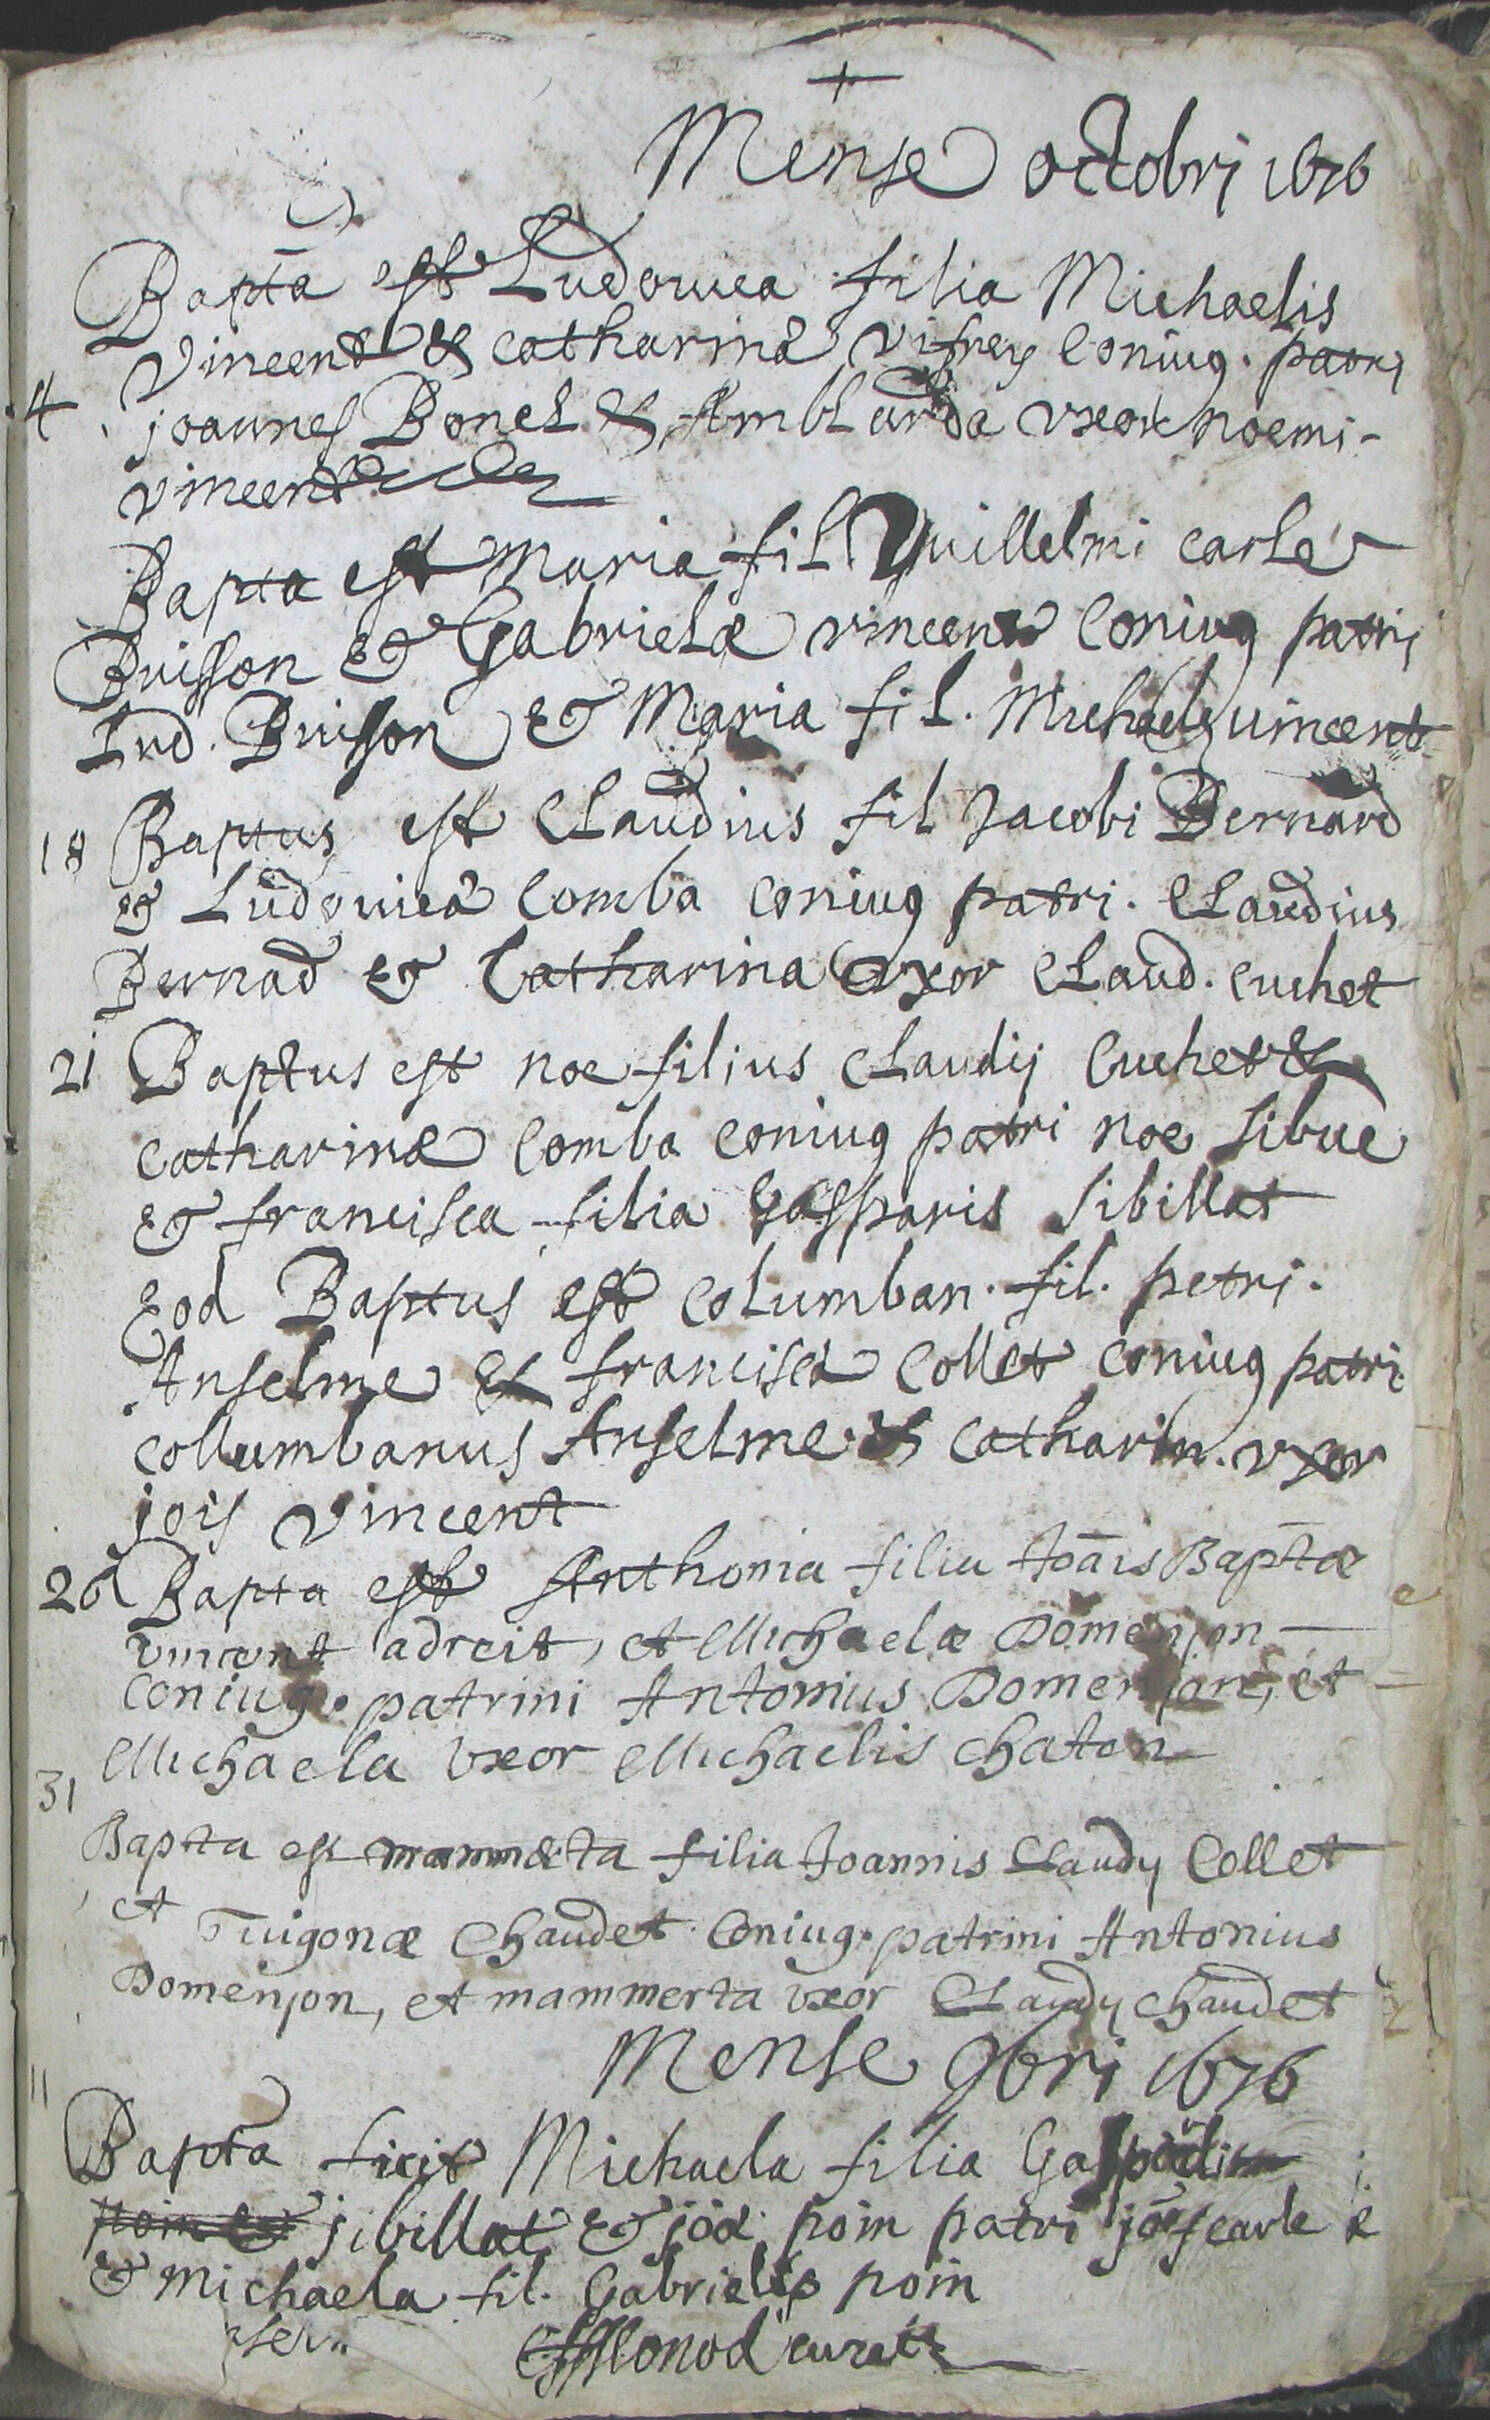 Mense octobri 1676
Bapta est Ludovica filia Michaelis
Vincent & catharina vifrey coniug. patri
4 joannes Bonet & Amblarda vxor noemi
vincent
Bapta est Maria fil Vuillelmi carle
Buisson & Gabrielæ vincent coniug patri
Lud. Buisson & Maria fil. Michaelis vincent
18 Baptus est Claudius fil Jacobi Bernard
& Ludovica Comba coniug patri. Claudius
Bernad & Catharina vxor Claud. cuchet
21 Baptus est noe filius Claudij Cuchet &
catharinæ Comba coniug patri noe sibue
& francisca filia Gasparis Sibillat
Eod Baptus est columban. fil. petri.
Anselme & francisca Collet coniug patri
collumbanus Anselme & catharin. vxor
jois vincent
26 Bapta est Anthonia filia Joais Baptæ
vincent adreit, et Michaelæ Domenjon
Coniug. patrini Antonius Domenjon, et
Michaela vxor Michaelis chaton
31
Bapta est mammeta filia Joannis Claudy Collet
et Guigonæ Chaudet Coniug. patrini Antonius
Domenjon, et mammerta vxor Claudy chaudet
Mense 9bri 1676
11
Bapta fuit Michaela filia
sibillat & joa poin patri jões carle
& Michaela fil. Gabrielis poin
Monod curatus